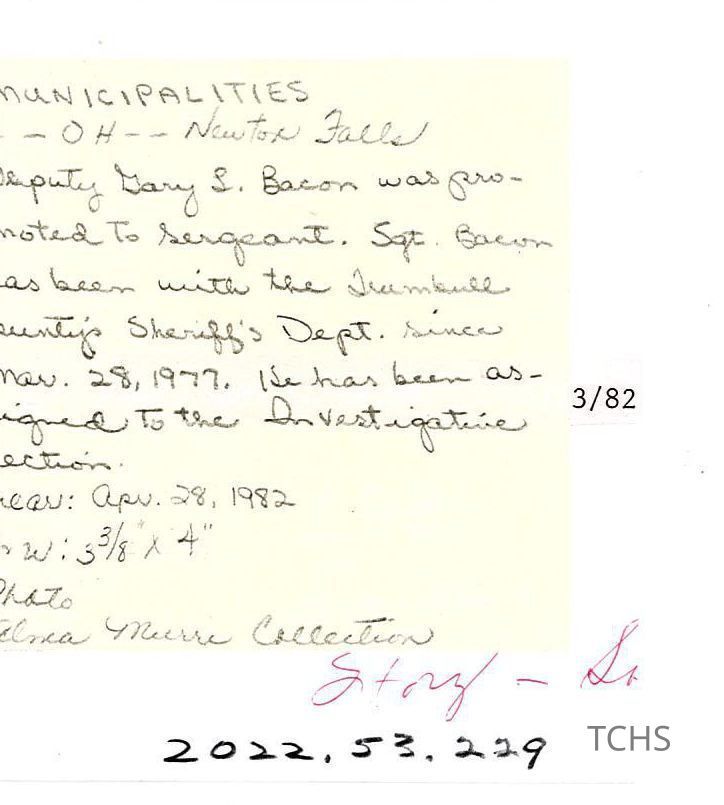 MUNICIPALITIES
- - OH -- Newton Falls
Deputy Gary L. Bacon was pro-
moted to Sergeant. Sgt. Bacon
as been with the Trumbull
ounty's Sheriff's Dept. since
Mar. 28, 1977. He has been as-
igned to the Investigative
ection.
year: Apr. 28, 1982
& W: 3 3/8" X 4"
Photo
elma Murri Collection
3/82
Story -
2022.53.229
TCHS